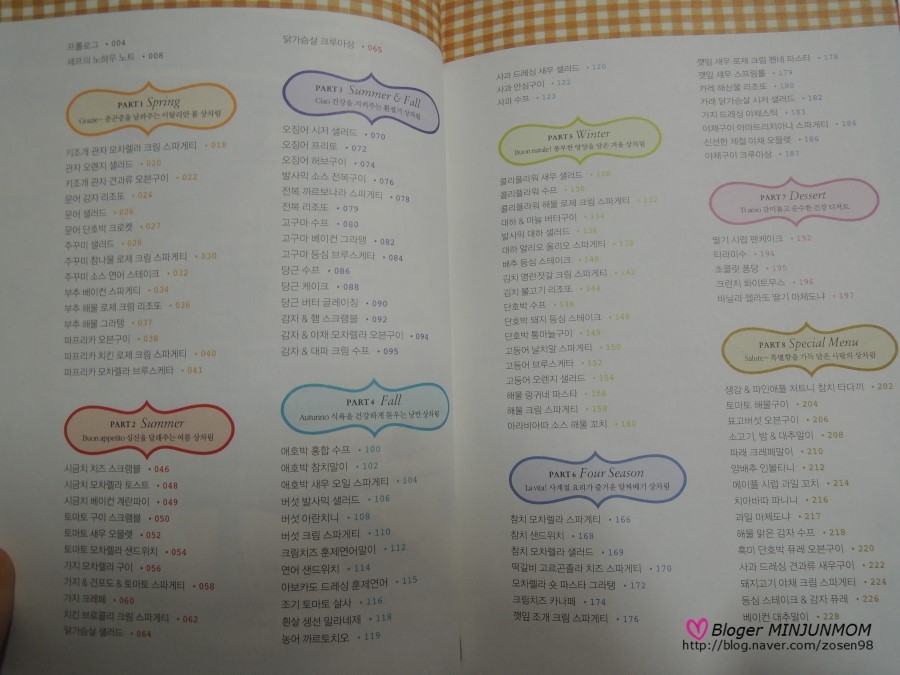 프롤로그 • 004
셰프의 노하우 노트 • 008
PART 1 Spring
Grazie~ 춘곤증을 날려주는 이탈리안 봄 상차림
키조개 관자 모차렐라 크림 스파게티 • 018
관자 오렌지 샐러드 • 020
키조개 관자 견과류 오븐구이 • 022
문어 감자 리조또 • 024
문어 샐러드 • 026
문어 단호박 크로켓 • 027
주꾸미 샐러드 • 028
주꾸미 참나물 로제 크림 스파게티 • 030
주꾸미 소스 연어 스테이크 • 032
부추 베이컨 스파게티 • 034
부추 해물 로제 크림 리조또 • 036
부추 해물 그라탱 • 037
파프리카 오븐구이 • 038
파프리카 치킨 로제 크림 스파게티 • 040
파프리카 모차렐라 브루스케타 • 041
PART 2 Summer
Buon appetito 심신을 달래주는 여름 상차림
시금치 치즈 스크램블 • 046
시금치 모차렐라 토스트 • 048
시금치 베이컨 계란파이 • 049
토마토 구이 스크램블 • 050
토마토 새우 오믈렛 • 052
토마토 모차렐라 샌드위치 • 054
가지 모차렐라 구이 • 056
가지 & 건포도 & 토마토 스파게티 • 058
가지 크레페 • 060
치킨 브로콜리 크림 스파게티 • 062
닭가슴살 샐러드 • 064
닭가슴살 크루아상 • 065
PART 3 Summer & Fall
Ciao 건강을 지켜주는 환절기 상차림
오징어 시저 샐러드 • 070
오징어 프리토 • 072
오징어 허브구이 • 074
발사믹 소스 전복구이 • 076
전복 까르보나라 스파게티 • 078
전복 리조또 • 079
고구마 수프 • 080
고구마 베이컨 그라탱 • 082
고구마 등심 브루스케타 • 084
당근 수프 • 086
당근 케이크 • 088
당근 버터 글레이징 • 090
감자 & 햄 스크램블 • 092
감자 & 야채 모차렐라 오븐구이 • 094
감자 & 대파 크림 수프 • 095
PART 4 Fall
Autunno 식욕을 건강하게 돋우는 낭만 상차림
애호박 홍합 수프 • 100
애호박 참치말이 • 102
애호박 새우 오일 스파게티 • 104
버섯 발사믹 샐러드 • 106
버섯 아란치니 • 108
버섯 크림 스파게티 • 110
크림치즈 훈제연어말이 • 112
연어 샌드위치 • 114
아보카도 드레싱 훈제연어 • 115
조기 토마토 살사 • 116
흰살 생선 밀라네제 • 118
농어 까르토치오 • 119
사과 드레싱 새우 샐러드 • 120
사과 안심구이 • 122
사과 수프 • 123
PART 5 Winter
Buon natale! 풍부한 영양을 담은 겨울 상차림
콜리플라워 새우 샐러드 • 128
콜리플라워 수프 • 130
콜리플라워 해물 로제 크림 스파게티 • 132
대하 & 마늘 버터구이 • 134
발사믹 대하 샐러드 • 136
대하 알리오 올리오 스파게티 • 138
배추 등심 스테이크 • 140
김치 명란젓갈 크림 스파게티 • 142
김치 불고기 리조또 • 144
단호박 수프 • 146
단호박 돼지 등심 스테이크 • 148
단호박 통마늘구이 • 149
고등어 날치알 스파게티 • 150
고등어 브루스케타 • 152
고등어 오렌지 샐러드 • 154
해물 링귀네 파스타 • 156
해물 크림 스파게티 • 158
아라비아따 소스 해물 꼬치 • 160
PART 6 Four Season
La vita! 사계절 요리가 즐거운 담짜배기 상차림
참치 모차렐라 스파게티 • 166
참치 샌드위치 • 168
참치 모차렐라 샐러드 • 169
떡갈비 고르곤졸라 치즈 스파게티 • 170
모차렐라 숏 파스타 그라탱 • 172
크림치즈 카나페 • 174
깻잎 조개 크림 스파게티 • 176
깻잎 새우 로제 크림 펜네 파스타 • 178
깻잎 새우 스프링롤 • 179
카레 해산물 리조또 • 180
카레 닭가슴살 시저 샐러드 • 182
가지 드레싱 야채스틱 • 183
야채구이 아마트리치아나 스파게티 • 184
신선한 계절 야채 오믈렛 • 186
야채구이 크루아상 • 187
PART 7 Dessert
Ti amo 감미롭고 순수한 건강 디저트
딸기 시럽 팬케이크 • 192
티라미수 • 194
초콜릿 퐁당 • 195
크런치 화이트무스 • 196
바닐라 젤라또 딸기 마체도냐 • 197
PART 8 Special Menu
Salute~ 특별함을 가득 담은 사랑의 상차림
생강 & 파인애플 처트니 참치 타다끼 • 202
토마토 해물구이 • 204
표고버섯 오븐구이 • 206
소고기, 밤 & 대추말이 • 208
파래 크레페말이 • 210
양배추 인볼티니 • 212
메이플 시럽 과일 꼬치 • 214
치아바타 파니니 • 216
과일 마체도냐 • 217
해물 맑은 감자 수프 • 218
흑미 단호박 퓨레 오븐구이 • 220
사과 드레싱 견과류 새우구이 • 222
돼지고기 야채 크림 스파게티 • 224
등심 스테이크 & 감자 퓨레 • 226
베이컨 대추말이 • 228
Bloger MINJUNMOM
http://blog.naver.com/zosen98